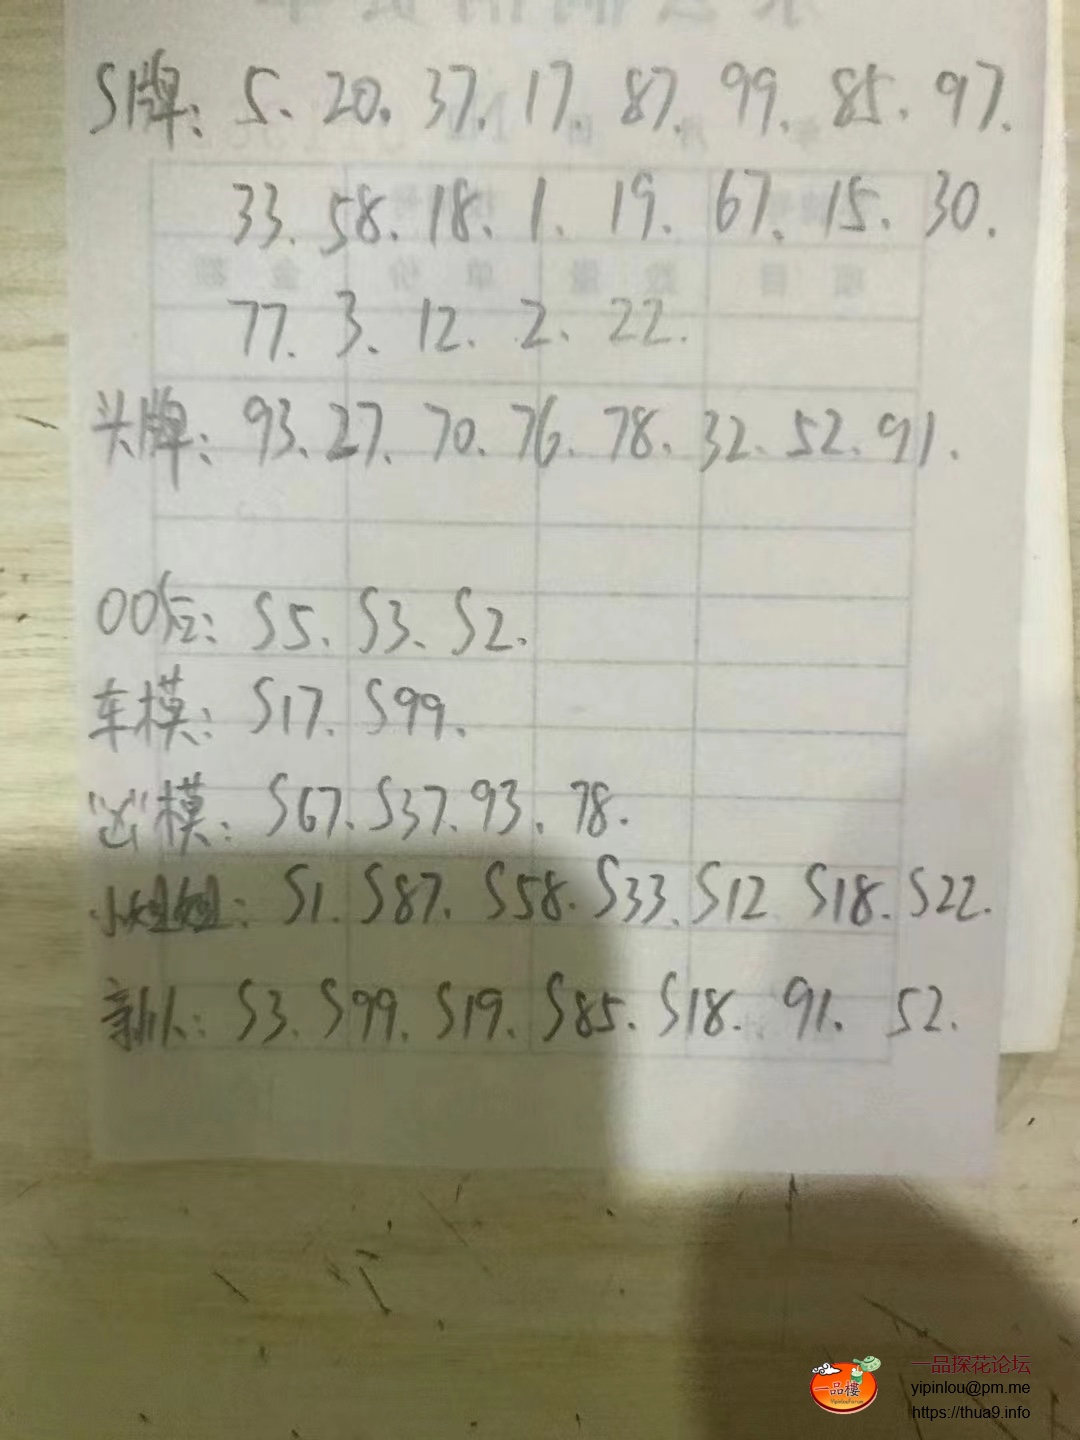 S牌: 5、20、37、17、87、99、85、97、
33、58、18、1、19、67、15、30、
77、3、12、2、22、
头牌: 93、27、70、76、78、32、52、91、
项 目 数 量 单 价 金 额
00后: S5、S3、S2、
车模: S17、S99、
"凶"模: S67、S37、93、78、
小姐姐: S1、S87、S58、S33、S12 S18、S22、
新人: S3、S99、S19、S85、S18、91、52、
一品樓
一品探花论坛
yipinlou@pm.me
https://thua9.info